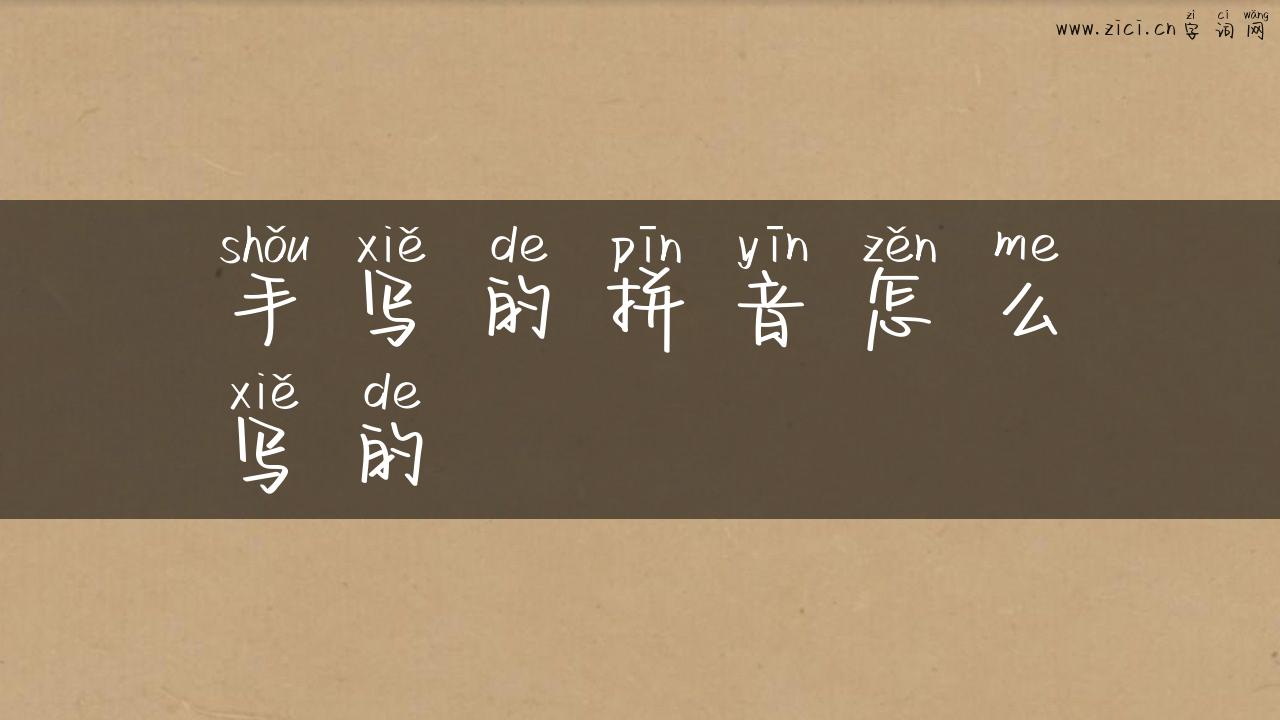 zì cí wǎng
www.zici.cn 字词网
shǒu xiě de pīn yīn zěn me
手写的拼音怎么
xiě de
写的